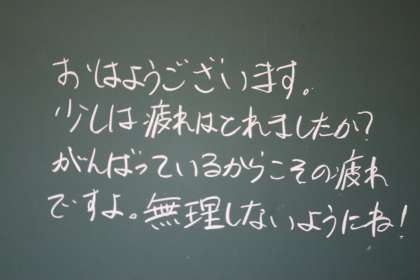 おはようございます。
少しは疲れはとれましたか?
がんばっているからこその疲れ
ですよ。無理しないようにね!